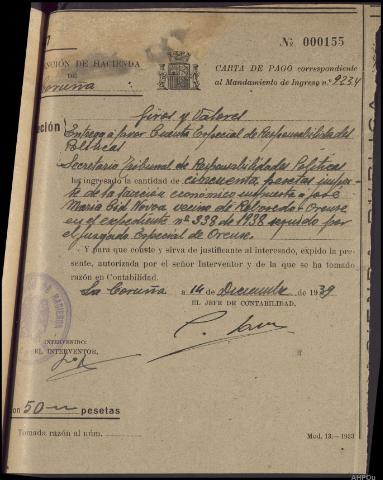 Nº 000155
NCIÓN DE HACIENDA
DE
Coruña
CARTA DE PAGO correspondiente
al Mandamiento de Ingreso n.º 9234
Giros y Valores
Entrega a favor Cuenta Especial de Responsabilidades
Políticas
Secretario Tribunal de Responsabilidades Políticas
ha ingresado la cantidad de cincuenta pesetas impor-
te de la sanción económica impuesta a José
María Cid vecino de Orense
en el expediente nº 338 de 1938 seguido por
el Juzgado Especial de Orense.
Y para que conste y sirva de justificante al interesado, expido la pre-
sente, autorizada por el señor Interventor y de la que se ha tomado
razón en Contabilidad.
La Coruña a 14 de Diciembre de 1939
EL JEFE DE CONTABILIDAD,
INTERVENIDO:
EL INTERVENTOR,
on 50 pesetas
Tomada razón al núm.
Mod. 13.—1933
AHPOu